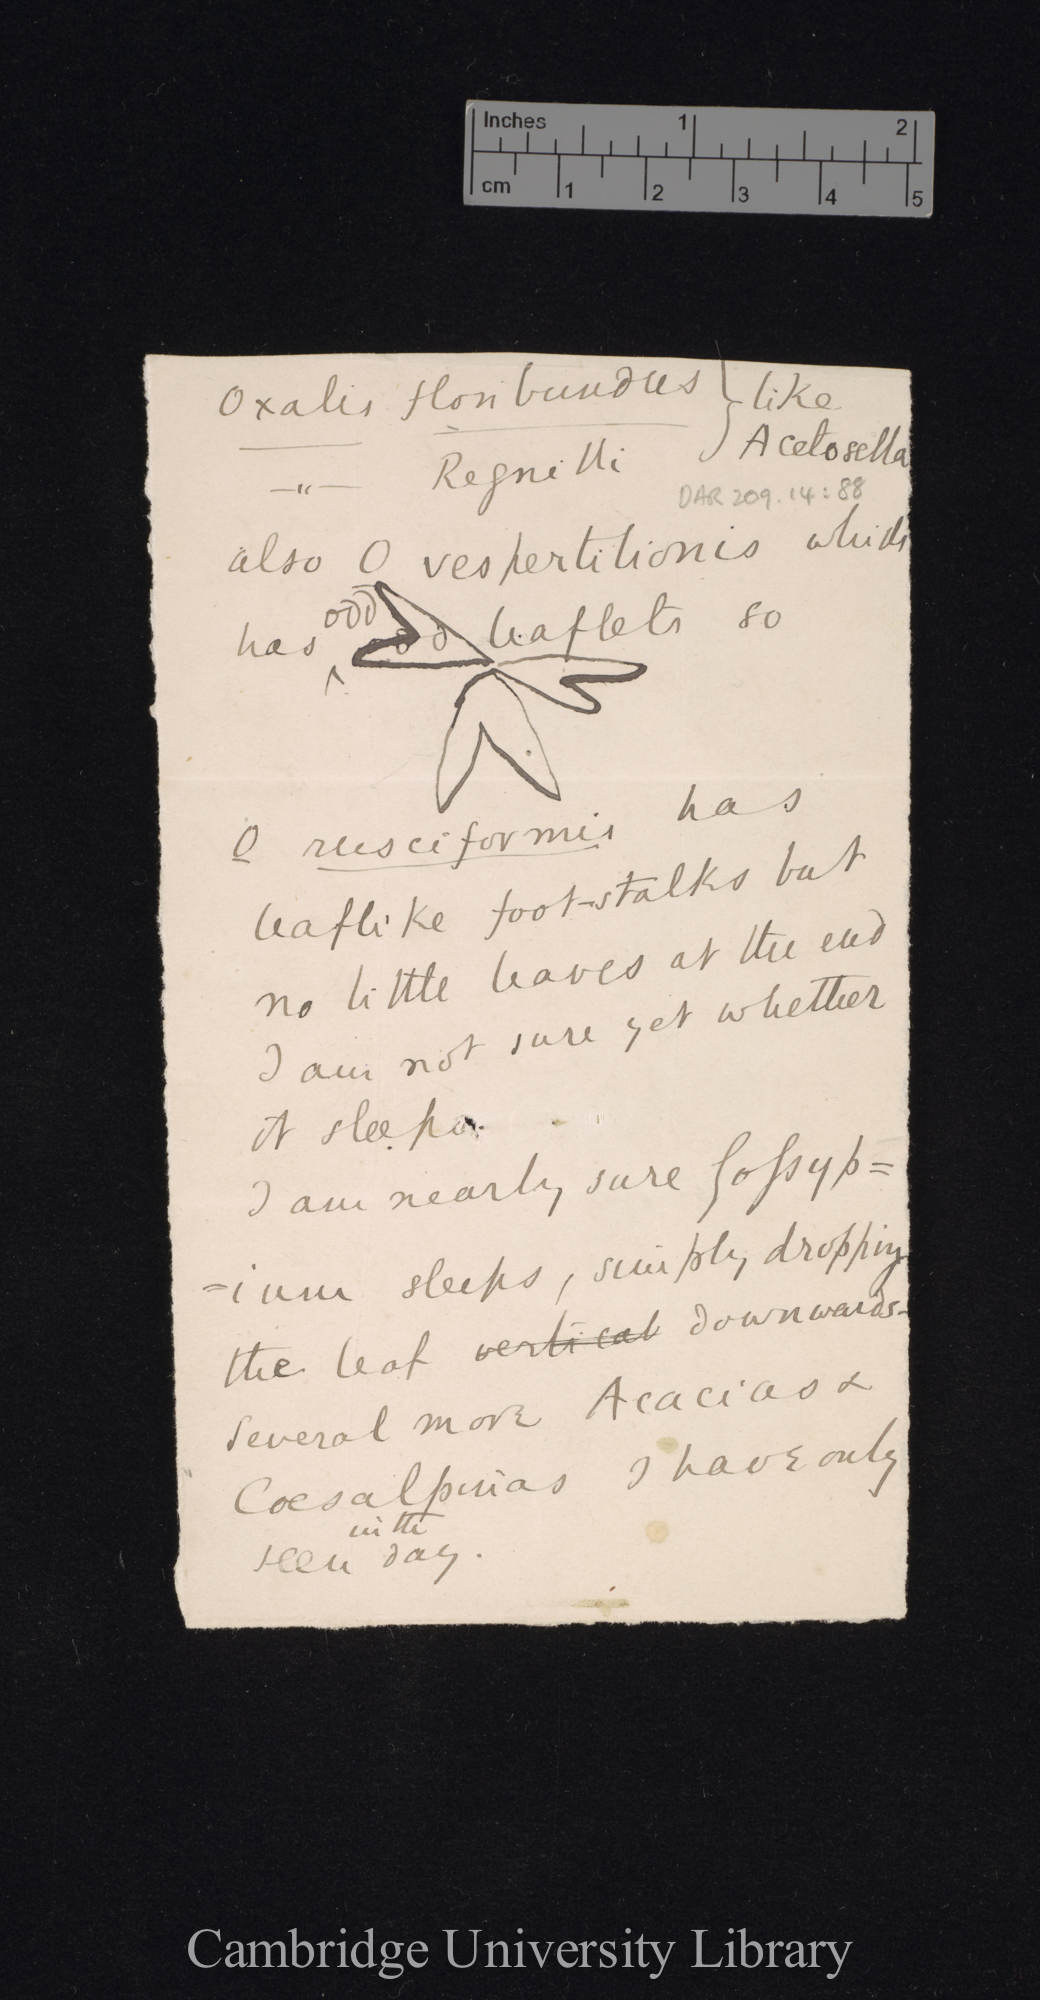 Inches 1 2
cm 1 2 3 4 5
Oxalis floribundus } like
—"— Regnelli } Acetosella
DAR 209.14:88
also O vespertilionis which
has ^odd odd leaflets so
O rusciformis has
leaflike foot-stalks but
no little leaves at the end
I am not sure yet whether
it sleeps.
I am nearly sure Gossyp=
=ium sleeps, simply dropping
the leaf vertical downwards-
Several more Acacias &
Coesalpinias I have only
in the
seen day.
Cambridge University Library